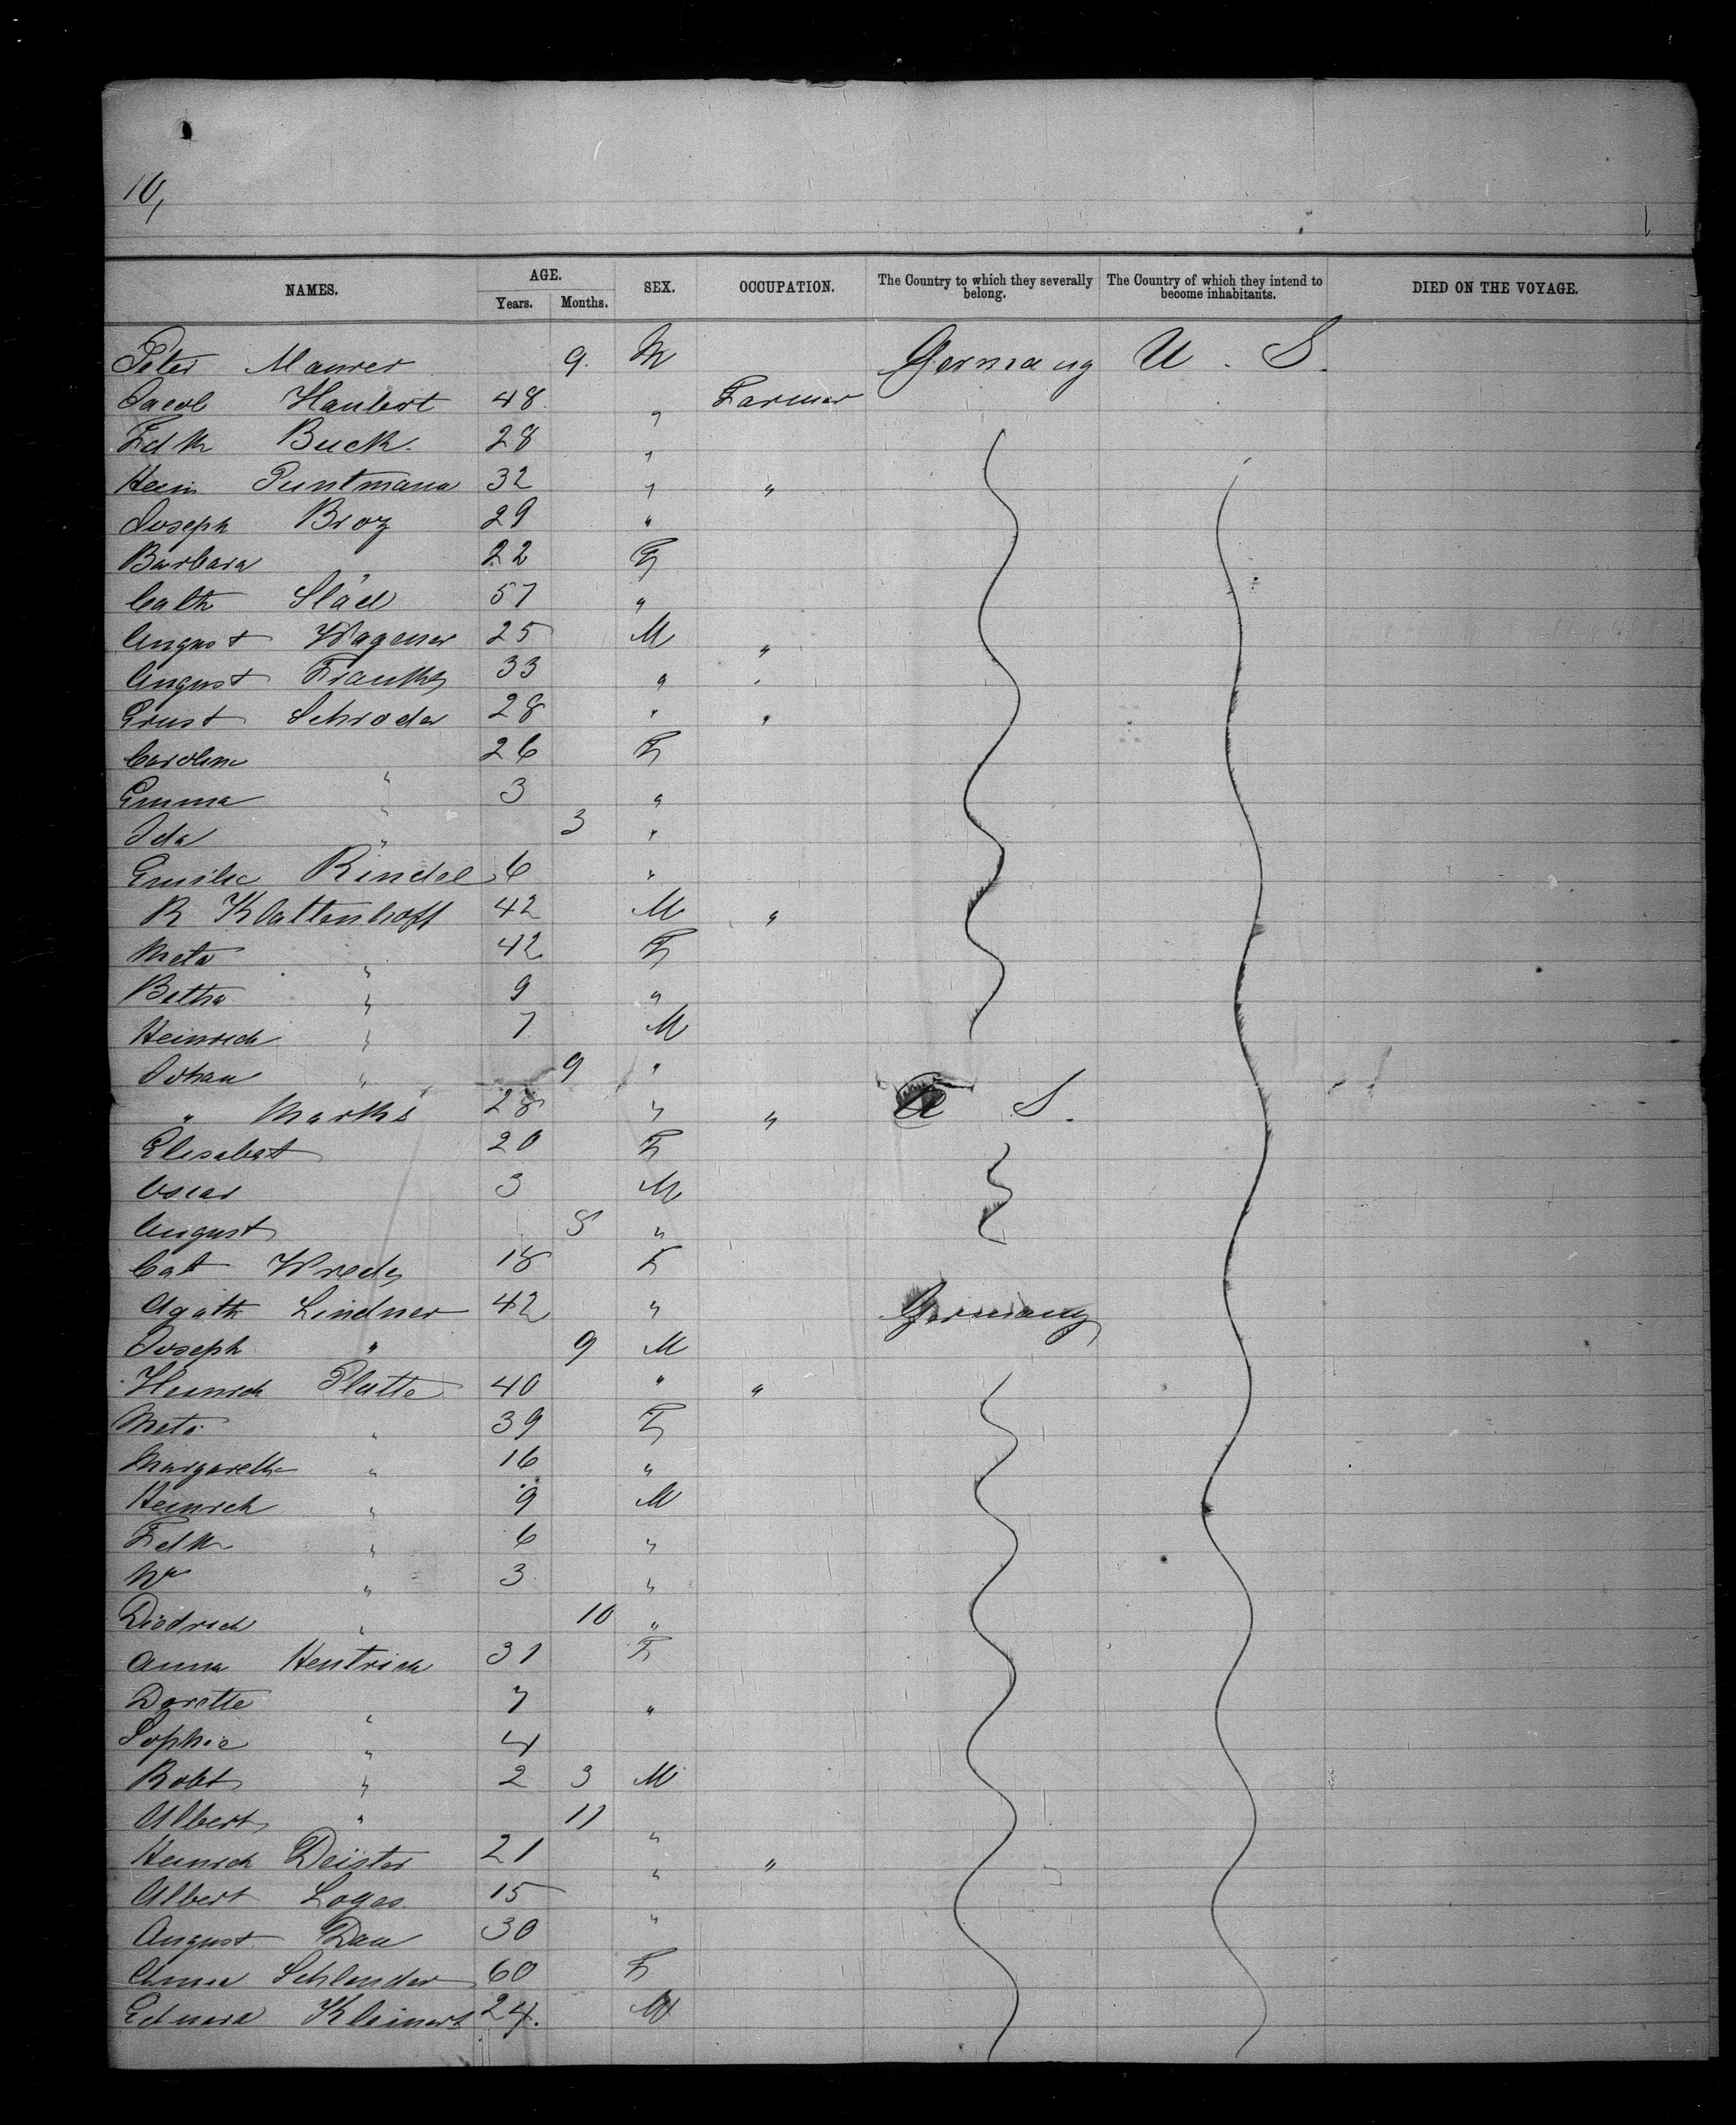 10,
NAMES. AGE. SEX. OCCUPATION. The Country to which they severally belong. The Country of which they intend to become inhabitants. DIED ON THE VOYAGE.
Years. Months.
Peter Maurer 9. M Germany U. S.
Jacob Haubert 48 " Farmer
Fdk Buck. 28 "
Hein Puntmann 32 " "
Joseph Broz 29 "
Barbara " 22 F
Cath Slád 57 "
August Wagener 25 M "
August Franke 33 " "
Ernst Schroder 28 " "
Caroline " 26 F
Emma " 3 "
Ida " 3 "
Emilie Rindel 6 "
R Klattenhoff 42 M "
Meta " 42 F
Betha " 9 "
Heinrich " 7 M
Johan " 9 "
" Marks 28 " " U S.
Elisabet 20 F
Oscar 3 M
August "
Cat Wrede 18 F
Agath Lindner 42 " Germany
Joseph " 9 M
Heinrich Platte 40 " "
Meta " 39 F
Margareth " 16 "
Heinrich " 9 M
Fdk " 6 "
Wm " 3 "
Diedrich " 10 "
Anna Hentrich 31 F
Dorette " 7 "
Sophie " 4
Robt " 2 3 M
Albert " 11 "
Heinrich Deister 21 " "
Albert Loges 15 "
August Dau 30
Anna Schlender 60 F
Eduard Kleinert 24. M